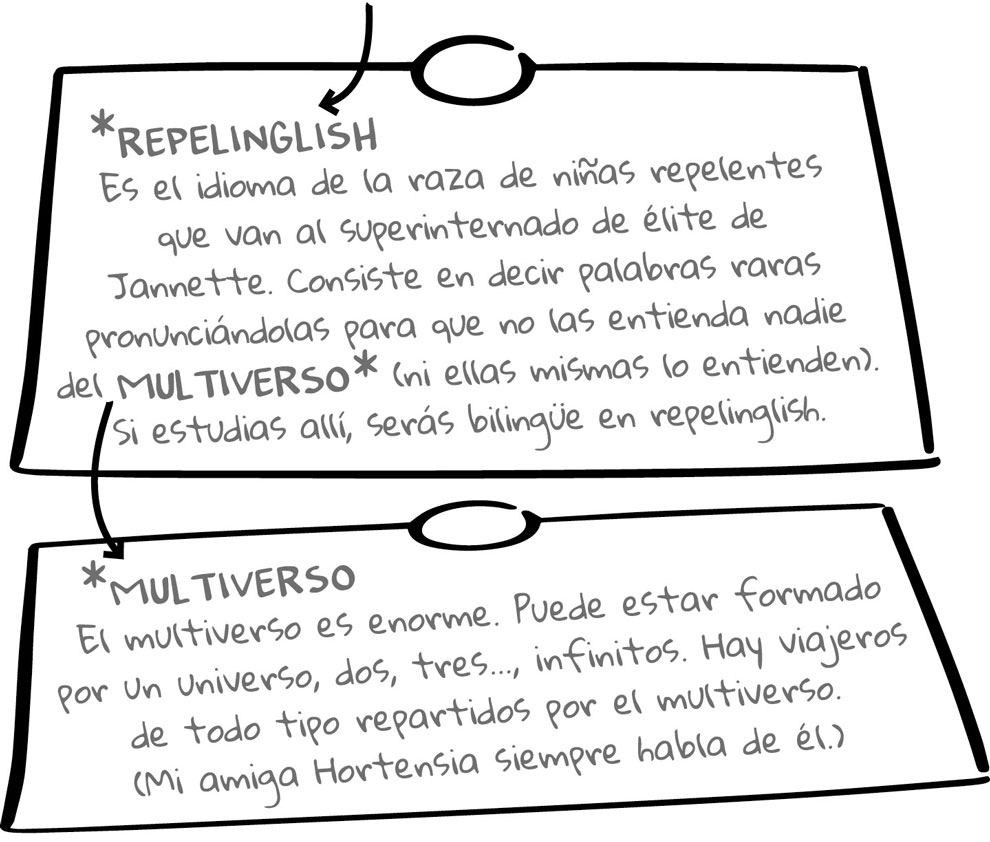 *REPELINGLISH
Es el idioma de la raza de niñas repelentes
que van al superinternado de élite de
Jannette. Consiste en decir palabras raras
pronunciándolas para que no las entienda nadie
del MULTIVERSO* (ni ellas mismas lo entienden).
Si estudias allí, serás bilingüe en repelinglish.
*MULTIVERSO
El multiverso es enorme. Puede estar formado
por un universo, dos, tres..., infinitos. Hay viajeros
de todo tipo repartidos por el multiverso.
(Mi amiga Hortensia siempre habla de él.)